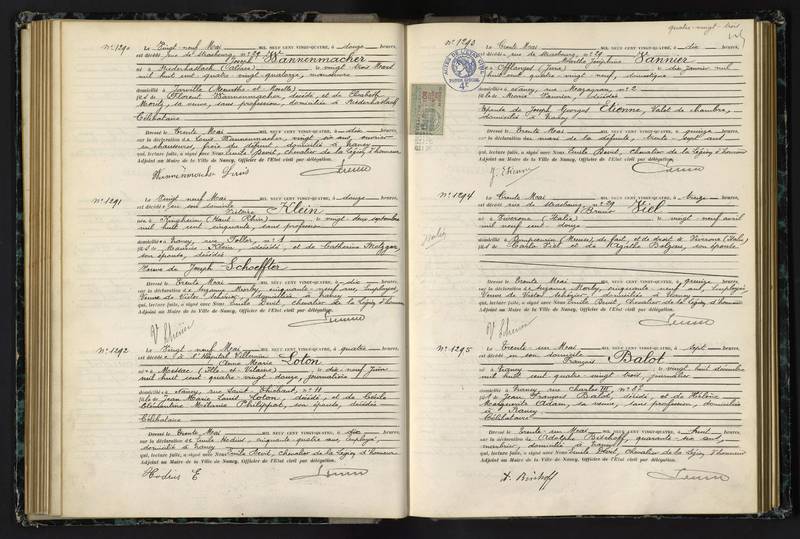 N° 1290
Le Vingt neuf Mai MIL NEUF CENT VINGT-QUATRE, à douze heures,
est décédé rue de Strasbourg, n° 29
Joseph Wannenmacher
né à Niederhaslach (Alsace) le vingt trois Mars
mil huit cent quatre vingt quatorze, manœuvre
domicilié à Jarville (Meurthe et Moselle)
fils de Florent Wannenmacher, décédé, et de Elisabeth
sa veuve, sans profession, domiciliée à Niederhaslach
Célibataire
Dressé le Trente Mai MIL NEUF CENT VINGT-QUATRE, à dix heures,
sur la déclaration de Louis Wannenmacher, vingt six ans, ouvrier
en chaussures, frère du défunt, domicilié à Nancy
qui, lecture faite, a signé avec Nous Emile Devit, Chevalier de la Légion d'honneur
Adjoint au Maire de la Ville de Nancy, Officier de l'Etat civil par délégation.
Wannenmacher Louis
N° 1291
Le Vingt neuf Mai MIL NEUF CENT VINGT-QUATRE, à douze heures,
est décédée en son domicile
Victoire Klein
née à Kingheim (Haut Rhin) le vingt deux septembre
mil huit cent cinquante, sans profession
domiciliée à Nancy, rue
fille de Maurice Klein, décédé, et de Catherine Metzger,
son épouse, décédée
Veuve de Joseph Schoeffter
Dressé le Trente Mai MIL NEUF CENT VINGT-QUATRE, à dix heures,
sur la déclaration de Suzanne Morley, cinquante neuf ans, employée,
Veuve de Victor Schésier, domiciliée à Nancy
qui, lecture faite, a signé avec Nous Emile Devit, Chevalier de la Légion d'honneur
Adjoint au Maire de la Ville de Nancy, Officier de l'Etat civil par délégation.
N° 1292
Le Vingt neuf Mai MIL NEUF CENT VINGT-QUATRE, à quatre heures,
est décédée à l'Hôpital Villemin
Anne Marie Loton
née à Messac (Ille et Vilaine) le dix neuf Juin
mil huit cent quatre vingt douze, journalière
domiciliée à Nancy, rue Saint Thiébaut, n° 11
fille de Jean Marie Louis Loton, décédé, et de Cécile
Clémentine Mélanie Philippot, son épouse, décédée
Célibataire
Dressé le Trente Mai MIL NEUF CENT VINGT-QUATRE, à dix heures,
sur la déclaration de Emile Hodius, cinquante quatre ans, employé,
domicilié à Nancy
qui, lecture faite, a signé avec Nous Emile Devit, Chevalier de la Légion d'honneur
Adjoint au Maire de la Ville de Nancy, Officier de l'Etat civil par délégation.
Hodius E
quatre-vingt trois
N° 1293
Le Trente Mai MIL NEUF CENT VINGT-QUATRE, à dix heures,
est décédée rue de Strasbourg, n° 29
Marthe Joséphine Vannier
née à Offlanges (Jura) le dix janvier mil
huit cent quatre vingt neuf, domestique
domiciliée à Nancy, rue Mazagran, n° 2
fille de Marie Vannier, décédée
Epouse de Joseph Georges Etienne, Valet de chambre,
domicilié à Nancy
Dressé le Trente Mai MIL NEUF CENT VINGT-QUATRE, à quinze heures,
sur la déclaration du mari de la défunte, trente sept ans
qui, lecture faite, a signé avec Nous Emile Devit, Chevalier de la Légion d'honneur
Adjoint au Maire de la Ville de Nancy, Officier de l'Etat civil par délégation.
J. Etienne
N° 1294
Le Trente Mai MIL NEUF CENT VINGT-QUATRE, à treize heures,
est décédé rue de Strasbourg, n° 29
Bruno Viel
né à Viverona (Italie) le vingt neuf avril
mil neuf cent douze
domicilié à (Meuse) de fait, et de droit à Viverona (Italie)
fils de Carlo Viel et de Agathe son épouse
Dressé le Trente Mai MIL NEUF CENT VINGT-QUATRE, à quinze heures,
sur la déclaration de Suzanne Morley, cinquante neuf ans, employée
Veuve de Victor Schésier, domiciliée à Nancy
qui, lecture faite, a signé avec Nous Emile Devit, Chevalier de la Légion d'honneur
Adjoint au Maire de la Ville de Nancy, Officier de l'Etat civil par délégation.
N° 1295
Le Trente un Mai MIL NEUF CENT VINGT-QUATRE, à sept heures,
est décédé en son domicile
François Balot
né à Nancy le vingt huit décembre
mil huit cent quatre vingt trois, journalier
domicilié à Nancy, rue Charles III, n° 87
fils de Jean François Balot, décédé, et de Hélène
Marguerite Adam, sa veuve, sans profession, domiciliée
à Nancy
Célibataire
Dressé le Trente un Mai MIL NEUF CENT VINGT-QUATRE, à neuf heures,
sur la déclaration de Adolphe Bischoff, quarante six ans,
menuisier, domicilié à Nancy
qui, lecture faite, a signé avec Nous Emile Devit, Chevalier de la Légion d'honneur
Adjoint au Maire de la Ville de Nancy, Officier de l'Etat civil par délégation.
A. Bischoff